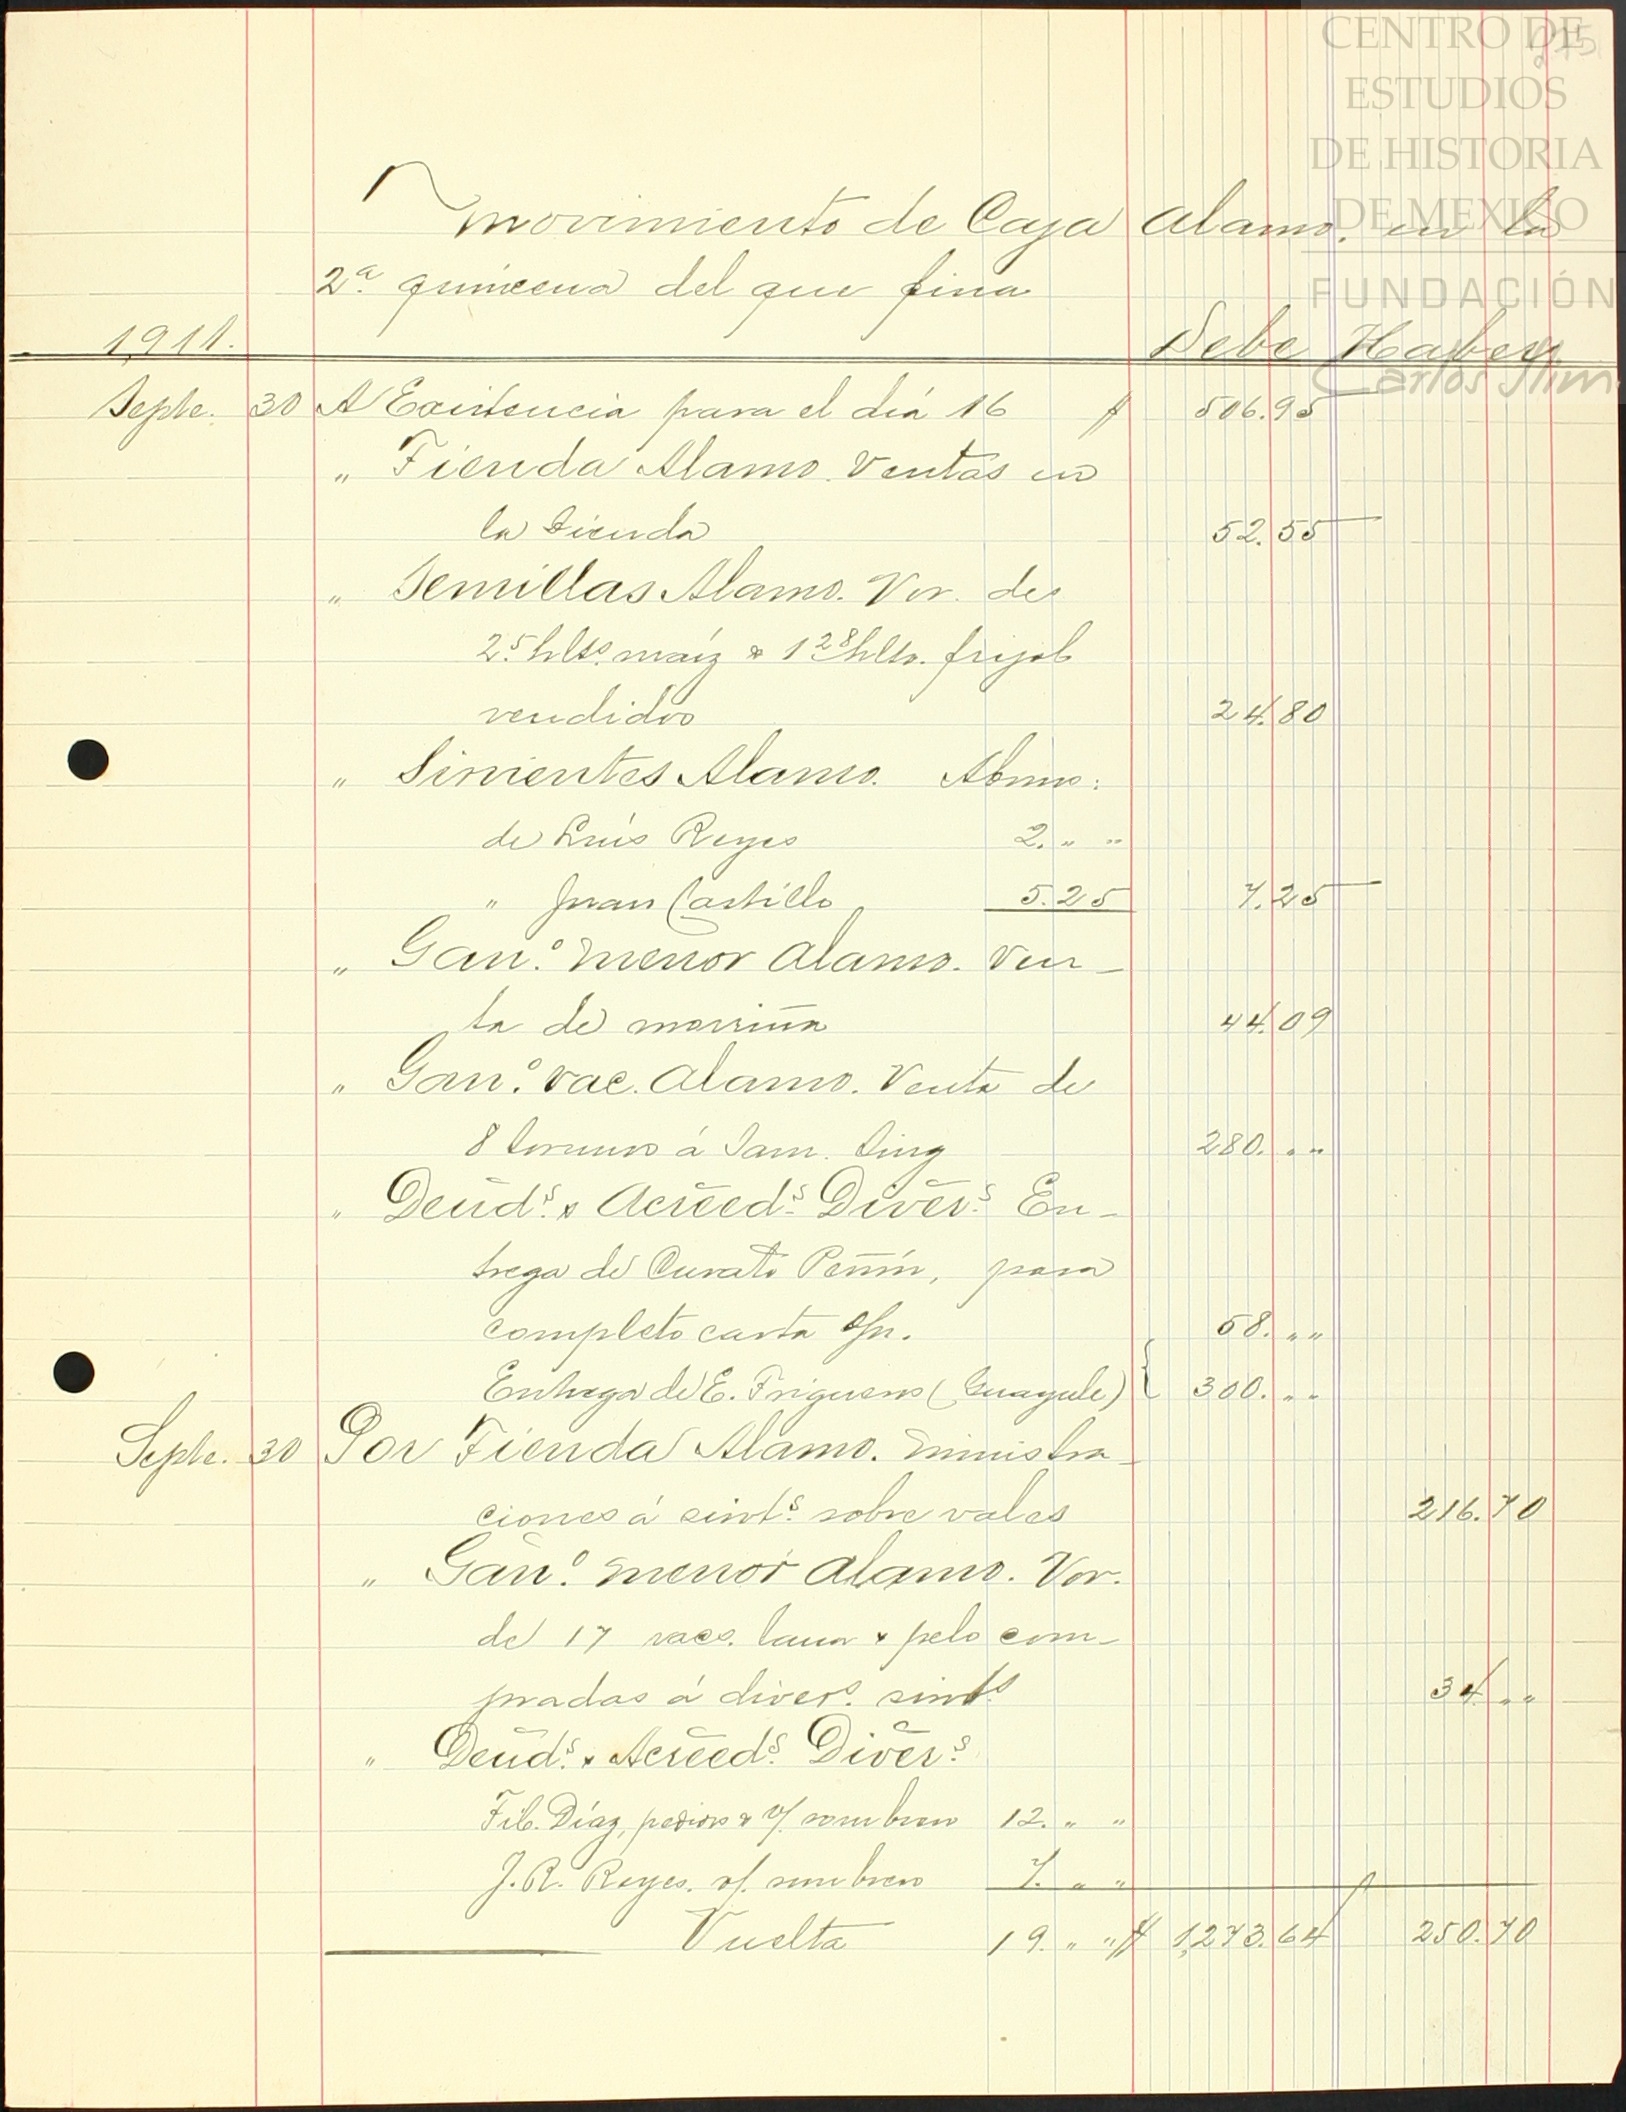 CENTRO DE
ESTUDIOS
DE HISTORIA
DE MEXICO
FUNDACIÓN
Carlos Slim
Movimiento de Caja Alamo. en la
2ª quincena del que fina
1,911. Debe Haber
Septe. 30 A Existencia para el diá 16 $ 506.95
" Tienda Alamo. Ventas en
la tienda 52.55
" Semillas Alamo. Vor. de
2.5 hlts. maíz & 1 28 hlts. frijol
vendidos 24.80
" Sirvientes Alamo. Abono:
de Luís Reyes 2. " "
" Juan Castillo 5.25 7.25
" Gan.º menor Alamo. Ven-
ta de morriña 44.09
" Gan.º vac. Alamo. Venta de
8 toruños á Sam. Sing 280. " "
" Deud.s & Acreed.s Divers. En-
trega de Curato Parrín, para
completo carta o/n. 58. " "
Entrega de E. Trigueros (Guayule) } 300. " "
Septe. 30 Por Tienda Alamo. ministra-
ciones á sirvts. sobre vales 216.70
" Gan.º menor Alamo. Vor.
de 17 lana & pelo com-
pradas á divers. sirvts. 34. " "
" Deud.s & Acreed.s Divers.
Fil. Díaz, & v/. sombrero 12. " "
J. R. Reyes. v/. sombrero 7. " "
Vuelta 19. " " $ 1,273.64 250.70